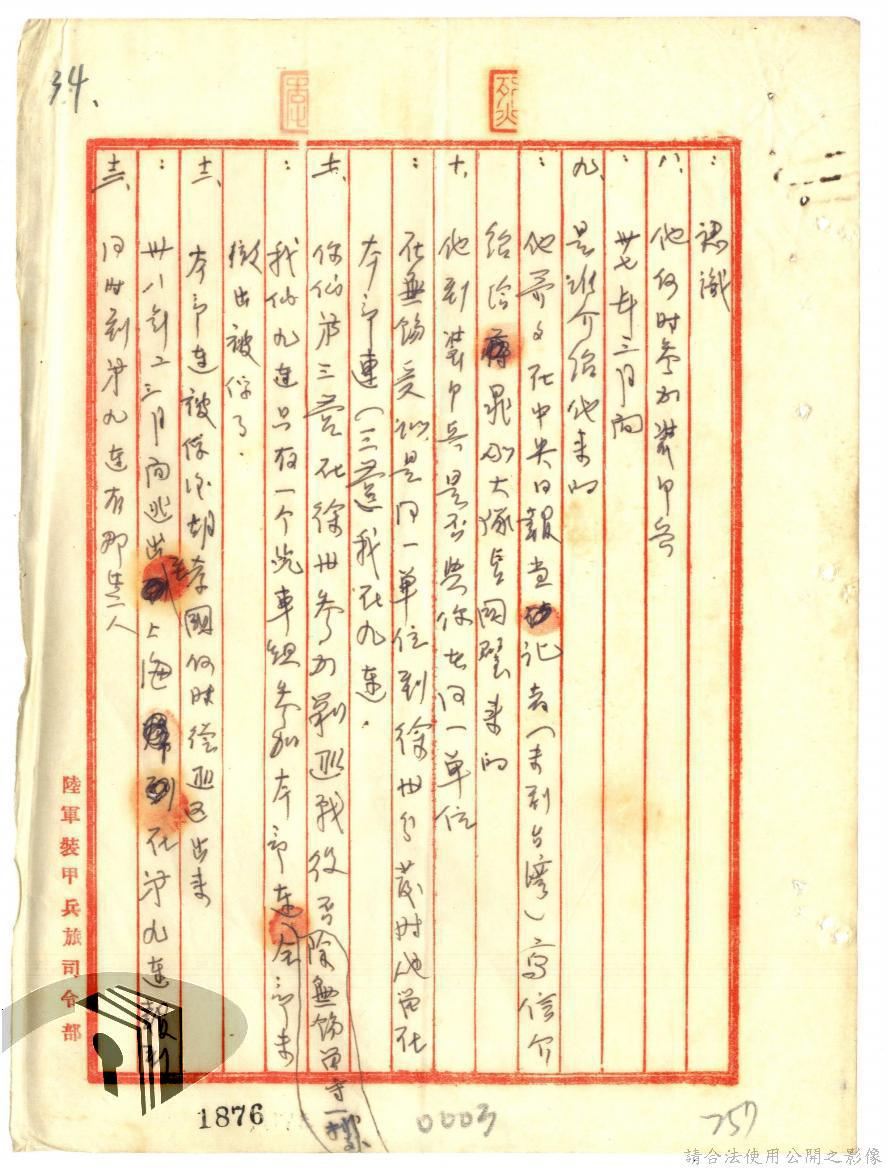 34.
：認識
八、他何时參加裝甲兵
：卅七年三月間
九、是誰介绍他来的
：他 在中央日報当記者（未到台湾）寫信介
绍给蔣 大隊長国 来的
十、他到裝甲兵是否與你在同一單位
：在無錫受訓是同一單位到徐州分 时他留在
本部連（三營）我在九連．
十一、你们第三營在徐州參加剿匪戰役否除無錫留守一
：我们九連只有一个汽車组參加本部連全部未
撤出被俘了．
十二、本部連被俘后胡孝國何时從匪区出来
：卅八年二三月间逃出 上海 在第九連報到
十三、同时到第九連有那些人
陸軍裝甲兵旅司令部
1876
0003
257
請合法使用公開之影像